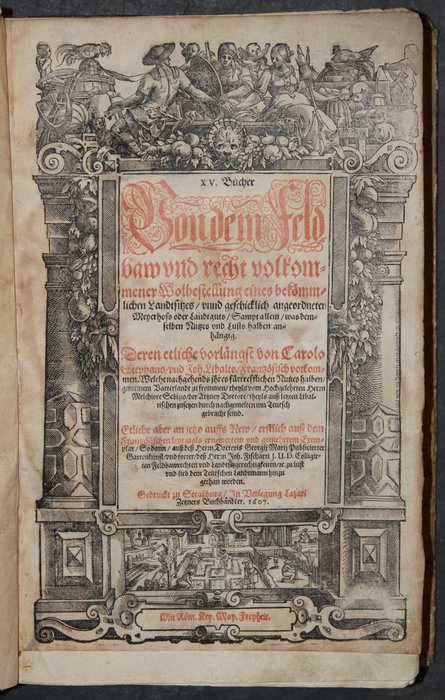 XV. Bücher
Von dem Feld
baw vnd recht volkom-
mener Wolbestellung eines bekömm-
lichen Landtsitzes / vnnd geschicklich angeordneten
Meyerhofs oder Landtguts / Sampt allem / was dem-
selben Nutzes vnd Lusts halben an-
hängig.
Deren etliche vorlängst von Carolo
Stephano / vnd Joh. Libalto / Frantzösisch vorkom-
men. Welche nachgehends jhres fürtrefflichen Nutzes halben /
gemeinem Vatterlandt zu frommen / theyls vom Hochgelehrten Herrn
Melchiore Sebizio / der Artzney Doctore / theyls auß letzten Libal-
tischen zusetzen durch nachgemelten inn Teutsch
gebracht seind.
Etliche aber an jetzo auffs New / erstlich auß dem
Frantzösischen letztmals ernewertem vnd gemehrtem Exem-
plar / Sodann / auß deß Herrn Doctoris Georgij Marij Publicierter
Gartenkunst / vnd forter / deß Herrn Joh. Fischarti J. U. D. Colligir-
ten Feldbawrechten vnd Landsitzgerechtigkeiten / ꝛc. zu lust
vnd lieb dem Teutschen Landtmann hinzu
gethan worden.
Gedruckt zu Straßburg / In Verlegung Lazari
Zetzners Buchhändler. 1607.
Mit Röm. Key. May. Freyheit.